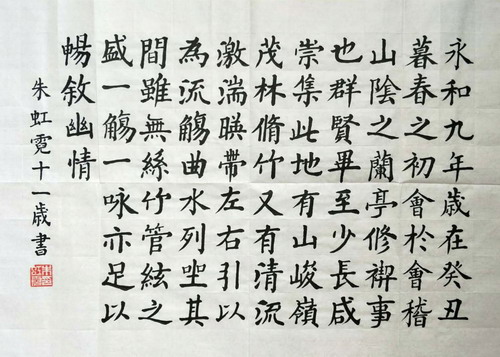 永和九年歲在癸丑
暮春之初會於會稽
山陰之蘭亭修禊事
也群賢畢至少長咸
崇集此地有山峻嶺
茂林脩竹又有清流
激湍暎帶左右引以
為流觴曲水列坐其
間雖無絲竹管絃之
盛一觴一咏亦足以
暢敘幽情
朱虹霓十一歲書